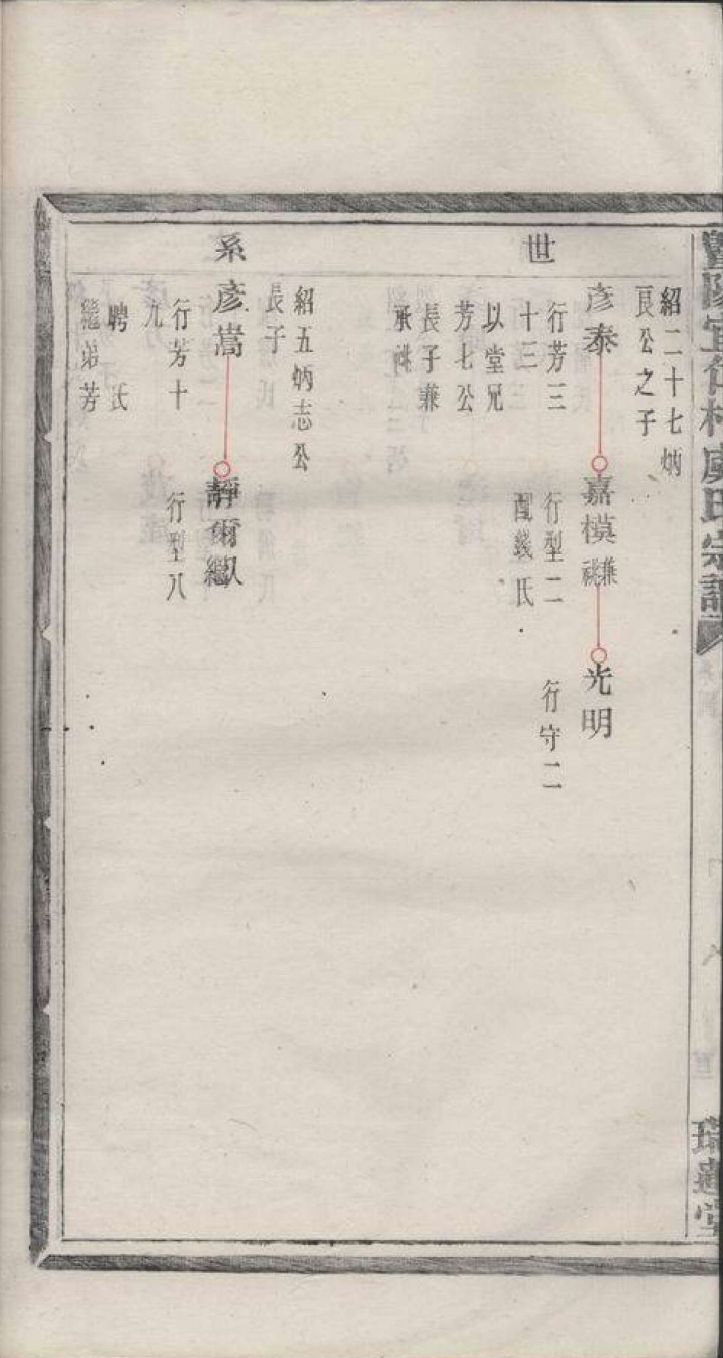 世
系
紹二十七炳
良公之子
彥泰
行芳三
十三
以堂兄
芳七公
長子兼
承祧
嘉模兼祧
行型二
配錢氏
光明
行守二
紹五炳志公
長子
彥嵩
行芳十
九
聘 氏
繼弟芳
靜爾繼
行型八